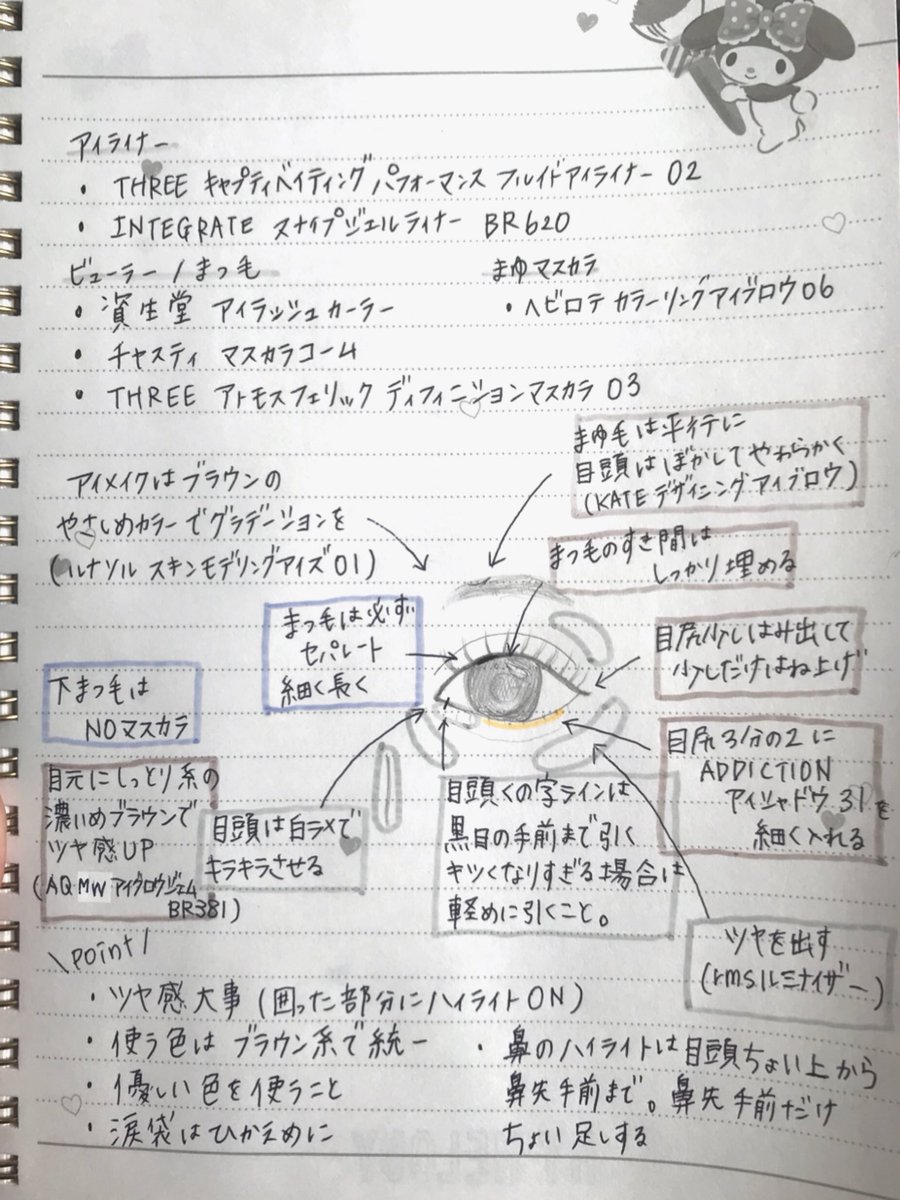 アイライナー
・ THREE キャプティベイティング パフォーマンス フルイドアイライナー 02
・ INTEGRATE スナイプジェルライナー BR620
ビューラー / まつ毛
・ 資生堂 アイラッシュカーラー
・ チャスティ マスカラコーム
・ THREE アトモスフェリック ディフィニションマスカラ 03
まゆマスカラ
・ヘビロテ カラーリングアイブロウ06
アイメイクはブラウンの
やさしめカラーでグラデーションを
(ルナソル スキンモデリングアイズ01)
まゆ毛は平行に
目頭はぼかしてやわらかく
(KATEデザイニングアイブロウ)
まつ毛のすき間は
しっかり埋める
まつ毛は必ず
セパレート
細く長く
目尻少しはみ出して
少しだけはね上げ
下まつ毛は
NOマスカラ
目尻3分の2に
ADDICTION
アイシャドウ 31を
細く入れる
目元にしっとり系の
濃いめブラウンで
ツヤ感UP
(AQ MW アイグロウジェム
BR381)
目頭は白ラメで
キラキラさせる
目頭くの字ラインは
黒目の手前まで引く
キツくなりすぎる場合は
軽めに引くこと。
ツヤを出す
(rmsルミナイザー)
\point/
・ツヤ感大事(囲った部分にハイライトON)
・使う色は ブラウン系で統一
・優しい色を使うこと
・涙袋はひかえめに
・鼻のハイライトは目頭ちょい上から
鼻先手前まで。鼻先手前だけ
ちょい足しする